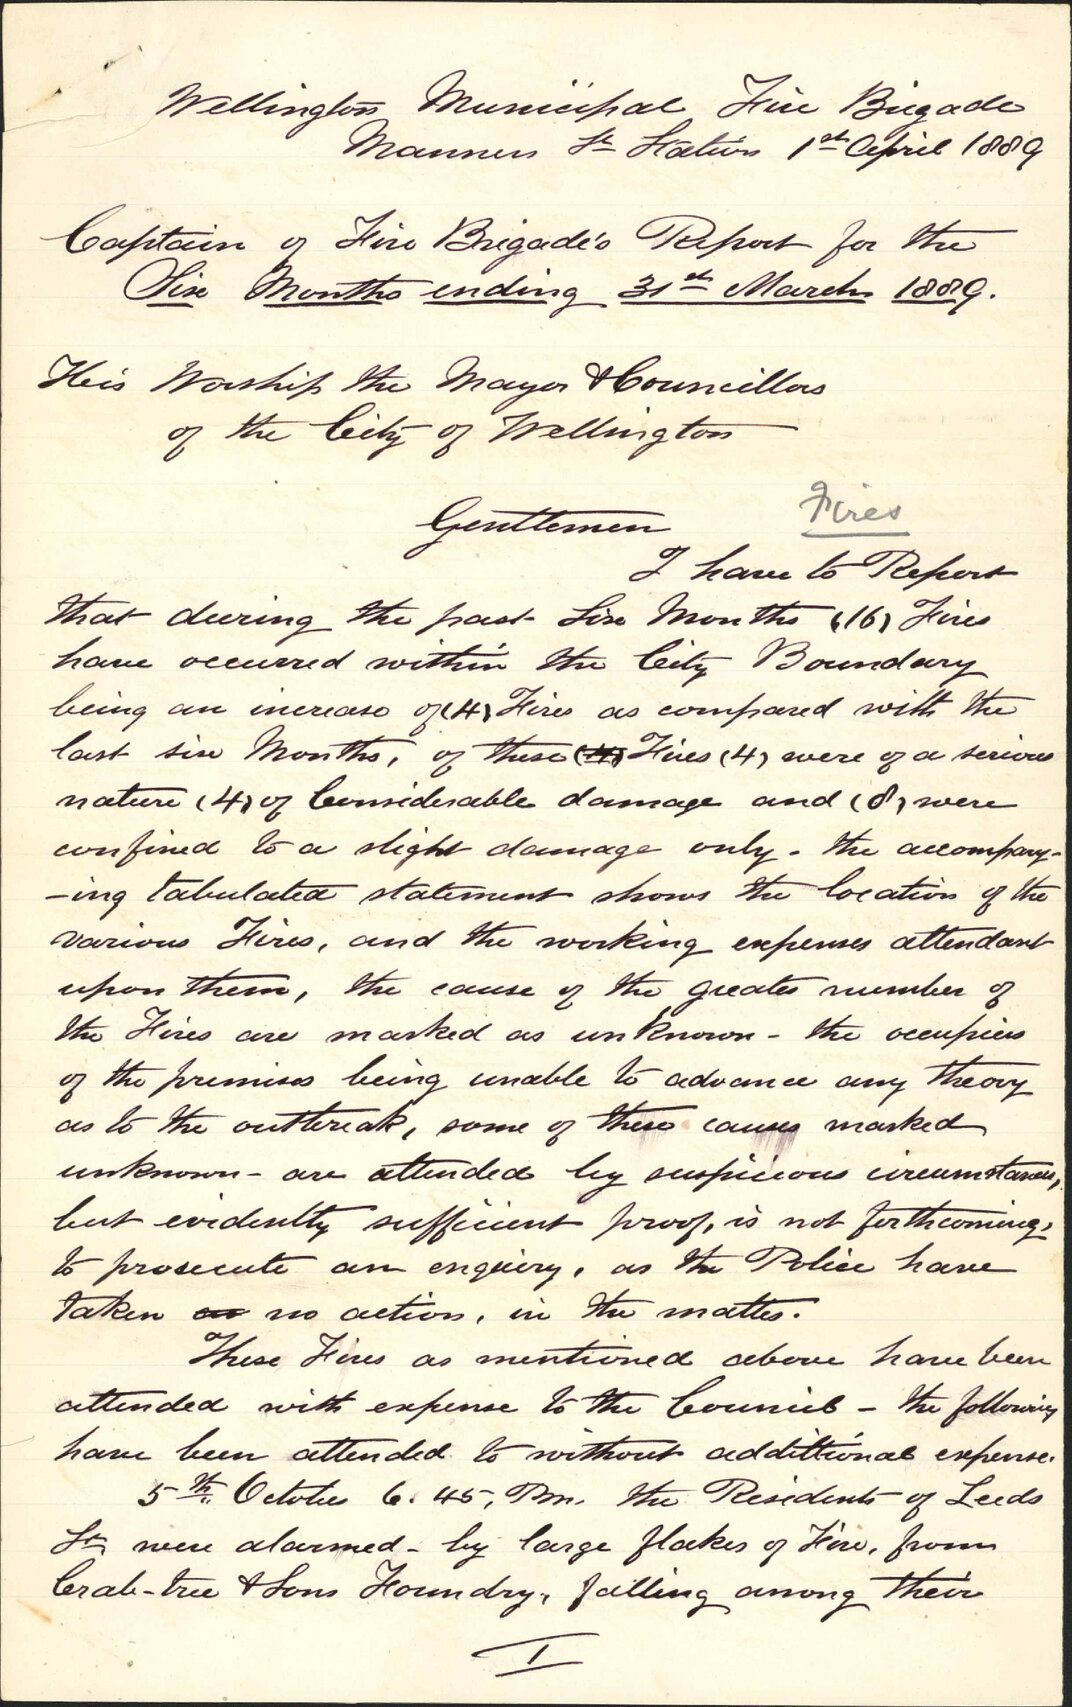 Wellington Municipal Fire Brigade
Manners St Station 1st April 1889
Captain of Fire Brigade's Report for the
Six Months ending 31st March 1889.
His Worship the Mayor & Councillors
of the City of Wellington
Gentlemen
Fires
I have to Report
that during the past Six Months (16) Fires
have occurred within the City Boundary
being an increase of (4) Fires as compared with the
last six Months, of these (4) Fires (4) were of a serious
nature (4) of Considerable damage and (8) were
confined to a slight damage only. the accompany-
-ing tabulated statement shows the location of the
various Fires, and the working expenses attendant
upon them, the cause of the greater number of
the Fires are marked as unknown - the occupiers
of the premises being unable to advance any theory
as to the outbreak, some of these causes marked
unknown - are attended by suspicious circumstances,
but evidently sufficient proof, is not forthcoming,
to prosecute an enquiry, as the Police have
taken no action, in the matter.
These Fires as mentioned above have been
attended with expense to the Council - the following
have been attended to without additional expense.
5th. October 6.45, Pm. the Residents of Leeds
St, were alarmed - by large flakes of Fire, from
Crab-tree & Sons Foundry, falling among their
1